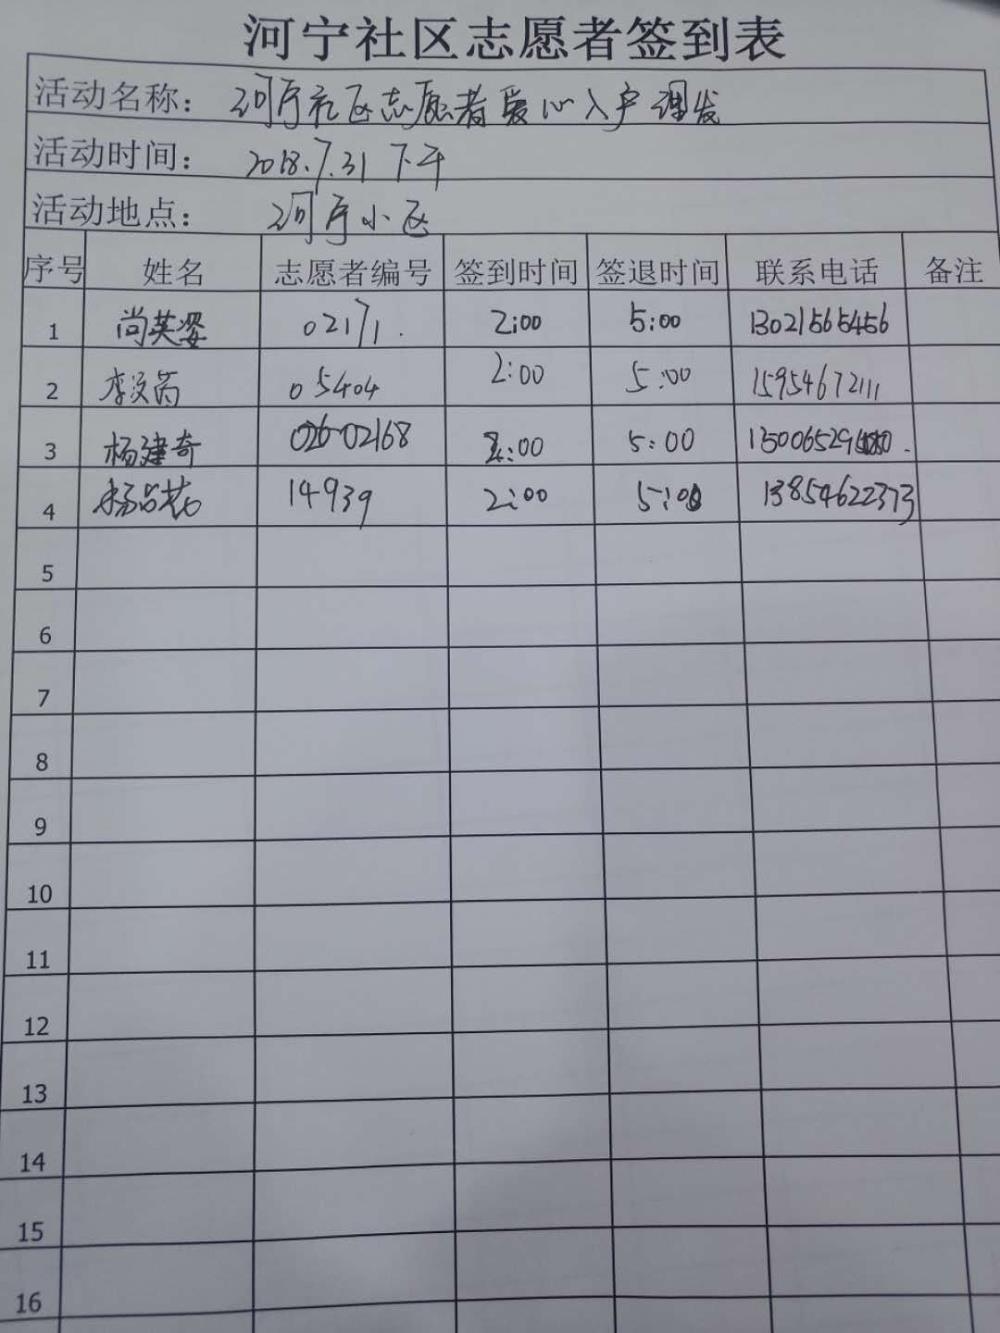 河宁社区志愿者签到表
活动名称： 河宁社区志愿者爱心入户理发
活动时间： 2018.7.31 下午
活动地点： 河宁小区
序号 姓名 志愿者编号 签到时间 签退时间 联系电话 备注
1 尚英姿 02171. 2:00 5:00 13021565456
2 李文芮 05404 2:00 5:00 15954672111
3 杨建奇 026-02168 2:00 5:00
4 14939 2:00 5:00 13854622373
5
6
7
8
9
10
11
12
13
14
15
16